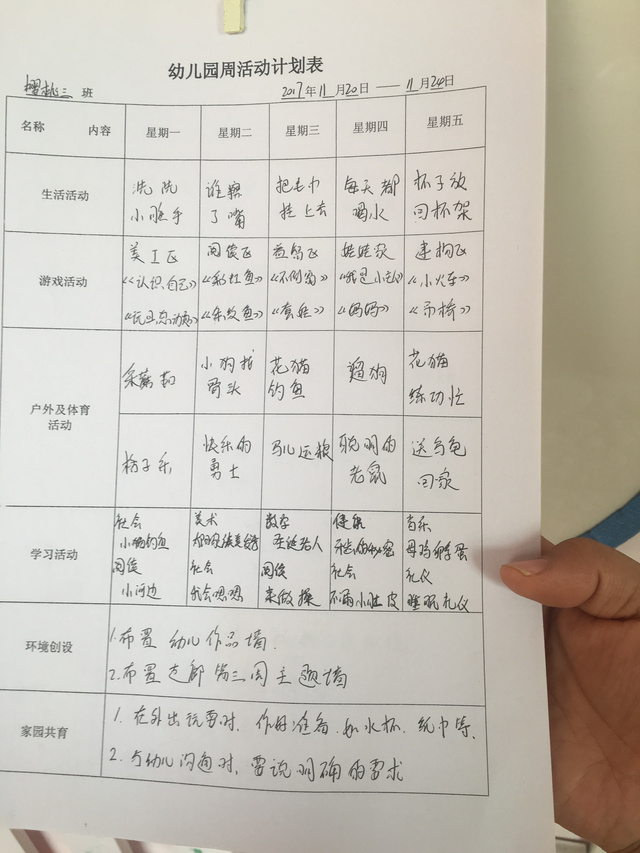 幼儿园周活动计划表
樱桃三 班 2017年11月20日 —— 11月24日
名称 内容 星期一 星期二 星期三 星期四 星期五
生活活动
洗洗 谁擦 把毛巾 每天都 杯子放
小脏手 了嘴 挂上去 喝水 回杯架
游戏活动
美工区 阅读区 益智区 娃娃家 建构区
《认识自己》 《彩虹鱼》 《不倒翁》 《小火车》
《套娃》 《妈妈》 《吊桥》
户外及体育
活动
采蘑菇 小狗找 花猫 遛狗 花猫
骨头 钓鱼 练功忙
快乐的 马儿运粮 聪明的 送乌龟
勇士 老鼠 回家
学习活动
社会 美术 数学 健康 音乐
小猫钓鱼 圣诞老人 母鸡孵蛋
阅读 社会 阅读 社会 礼仪
小河边 我会嗯嗯 来做操 睡眠礼仪
环境创设
1.布置幼儿作品墙.
2.布置走廊第三周主题墙
家园共育
1.在外出玩耍时、作好准备.如水杯.纸巾等.
2.与幼儿沟通时、要说明确的要求